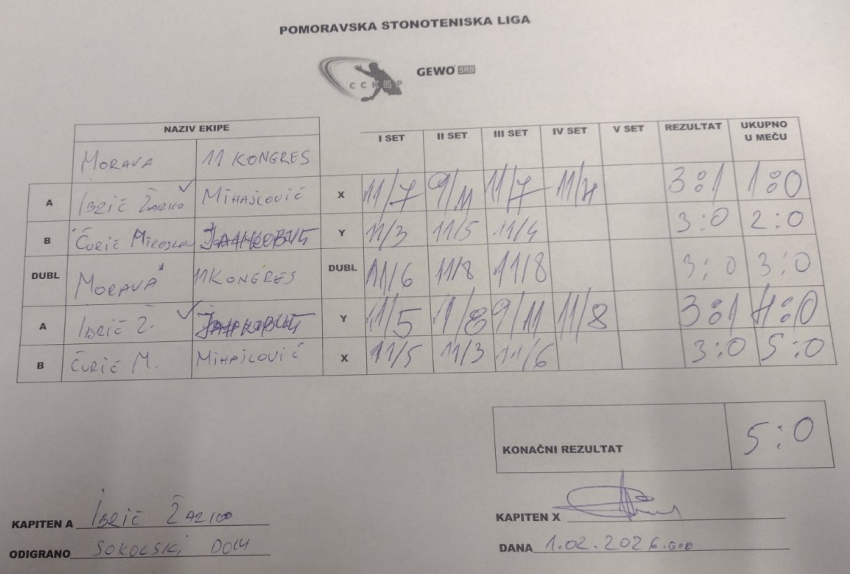 POMORAVSKA STONOTENISKA LIGA
GEWO SRB
NAZIV EKIPE I SET II SET III SET IV SET V SET REZULTAT UKUPNO U MEČU
MORAVA 11 KONGRES
A IBRIČ ŽARKO MIHAJLOVIĆ X 11/7 9/11 11/7 11/4 3:1 1:0
B ĆURIĆ MIROSLAV Y 11/3 11/5 11/4 3:0 2:0
DUBL MORAVA 11 KONGRES DUBL 11/6 11/8 11/8 3:0 3:0
A IBRIČ Ž. Y 11/5 11/8 9/11 11/8 3:1 4:0
B ĆURIĆ M. MIHAJLOVIĆ X 11/5 11/3 11/6 3:0 5:0
KONAČNI REZULTAT 5:0
KAPITEN A IBRIČ ŽARKO KAPITEN X
ODIGRANO SOKOLSKI DOM DANA 1.02.2026.